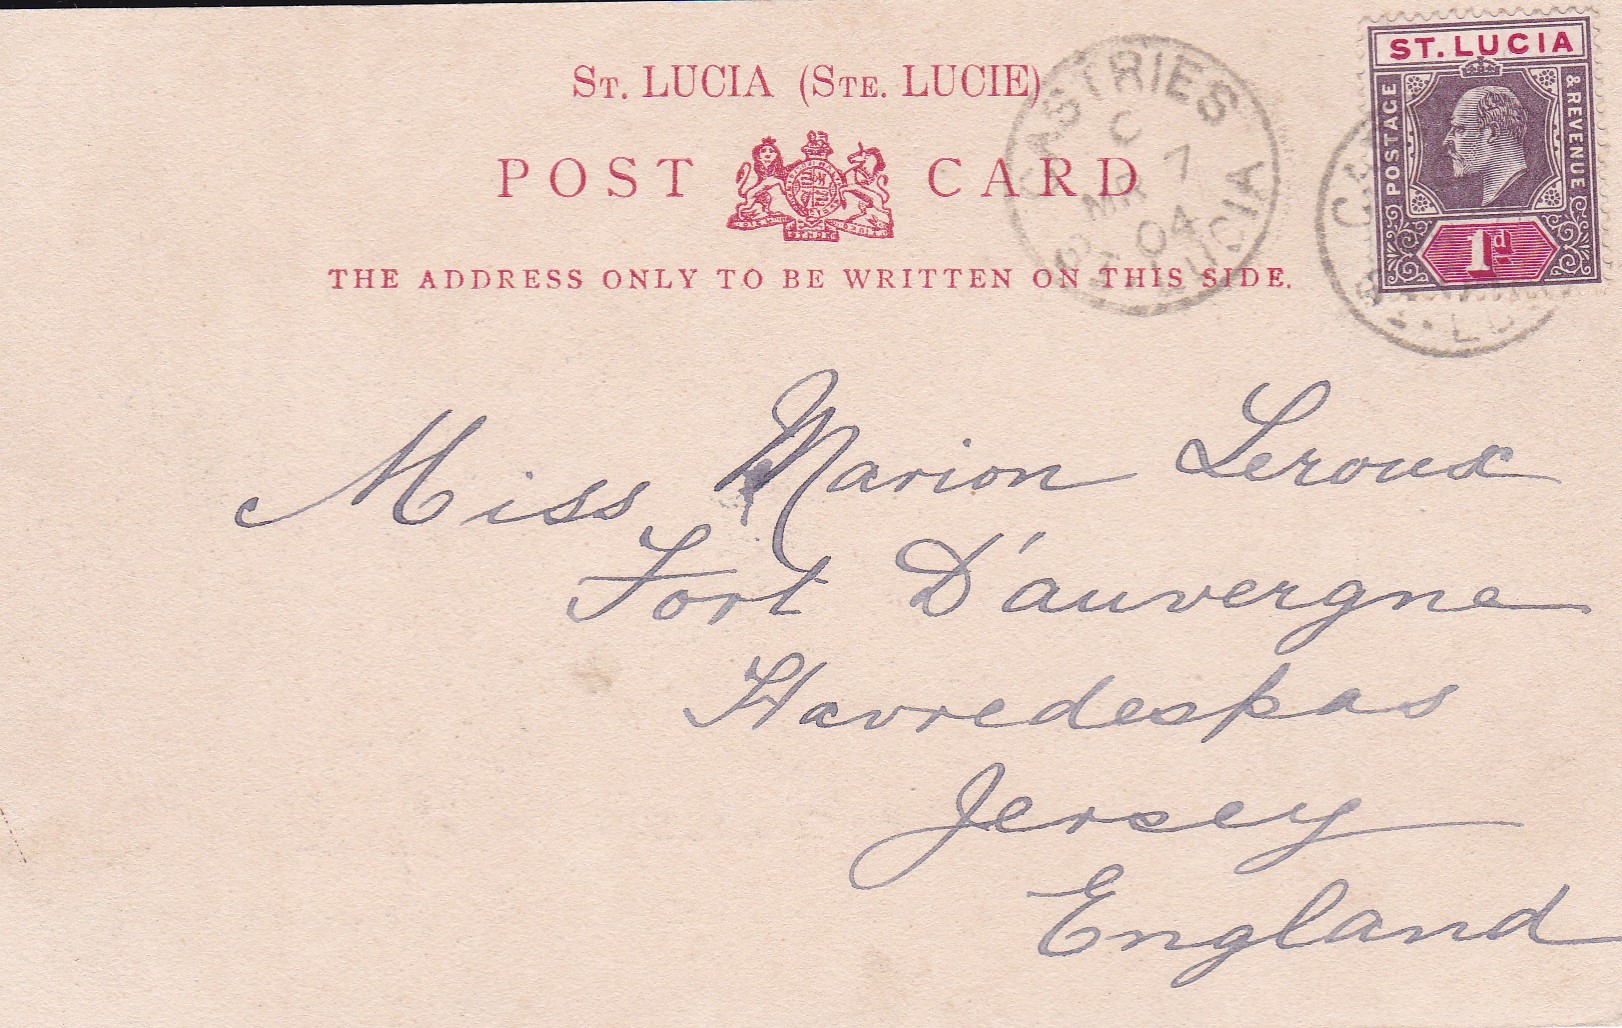 St. LUCIA (Ste. LUCIE)
POST CARD
THE ADDRESS ONLY TO BE WRITTEN ON THIS SIDE.
CASTRIES
C
MR 7
04
ST. LUCIA
ST. LUCIA
POSTAGE & REVENUE
1d
Miss Marion Leroux
Fort D'auvergne
Havredespas
Jersey
England